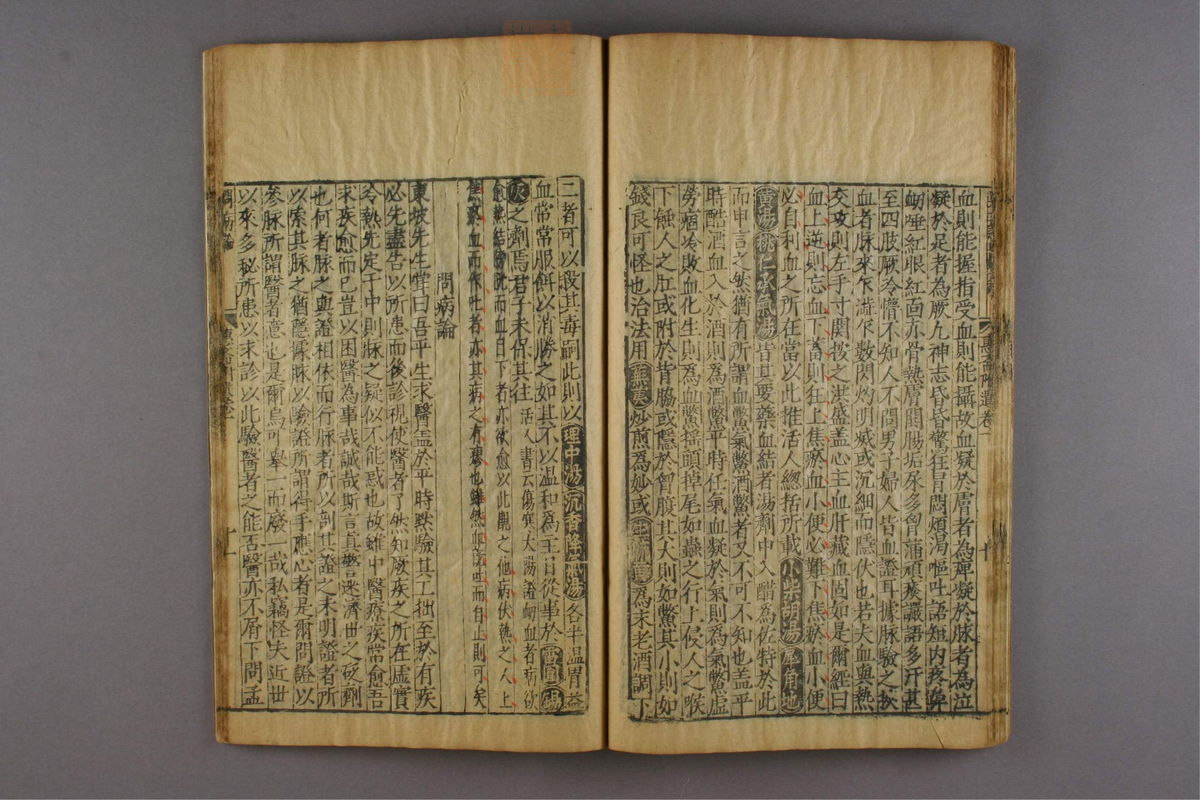 血則能握指受血則能攝故血凝於膚者為痺凝於脉者為泣
凝於足者為厥九神志昏昏驚狂冒悶煩渴嘔吐語短内疼鼻
衂唾紅眼紅面亦骨熱膚閏腸垢尿多胷滿頑痰譫語多汗甚
至四肢厥冷懵不知人不問男子婦人皆血證耳據脉驗之扷
血者脉來乍澁乍數閃灼明滅或沉細而隱伏也若夫血與熱
交攻則左手寸関按之洪盛盖心主血肝藏血固如是爾經曰
血上逆則忘血下畜則狂上焦瘀血小便必難下焦瘀血小便
必自利血之所在當以此推活人緫括所載小柴胡湯犀角地
黄湯桃仁承氣湯皆其要藥血結者湯劑中入醋為佐特於此
而申言之然猶有所謂血鱉氣鱉酒鱉者又不可不知也盖平
時酷酒血入於酒則為酒鱉平時任氣血凝於氣則為氣鱉虛
勞痼冷敗血化生則為血鱉揺頭掉尾如蟲之行上侵人之喉
下蝕人之肛或附於背膓或隱於曾腹其大則如鱉其小則如
錢良可怪也治法用蕪荑炒煎為妙或為末老酒調下
二者可以殺其毒嗣此則以理中湯沉香降氣湯各半温胃益
血常常服餌以消勝之如其不以温和為主旨從事於雷圓錫
灰之劑焉君子未保其往活人書云傷寒太陽證衂血者病欲
愈熱結膀胱而血自下者亦欲愈以此觀之他病伏熱之人上
焦瘀血而作吐者亦其病之有瘳也雖然血旣吐而自止則可矣
問病論
東坡先生甞曰吾平生求醫盖於平時黙驗其工拙至於有疾
必先盡告以所患而後診視使醫者了然知厥疾之所在虛實
冷熱先定于中則脉之疑似不能惑也故雖中醫療疾常愈吾
求疾愈而已豈以困醫為事哉誠哉斯言真警迷濟世之砭劑
也何者脉之與證相依而行脉者所以剖其證之未明證者所
以索其脉之猶隱據脉以驗證所謂得手應心者是爾問證以
參脉所謂醫者意也是爾烏可舉一而廢一哉私竊怪夫近世
以來多秘所患以求診以此驗醫者之能否醫亦不屑下問孟
問病論
十一